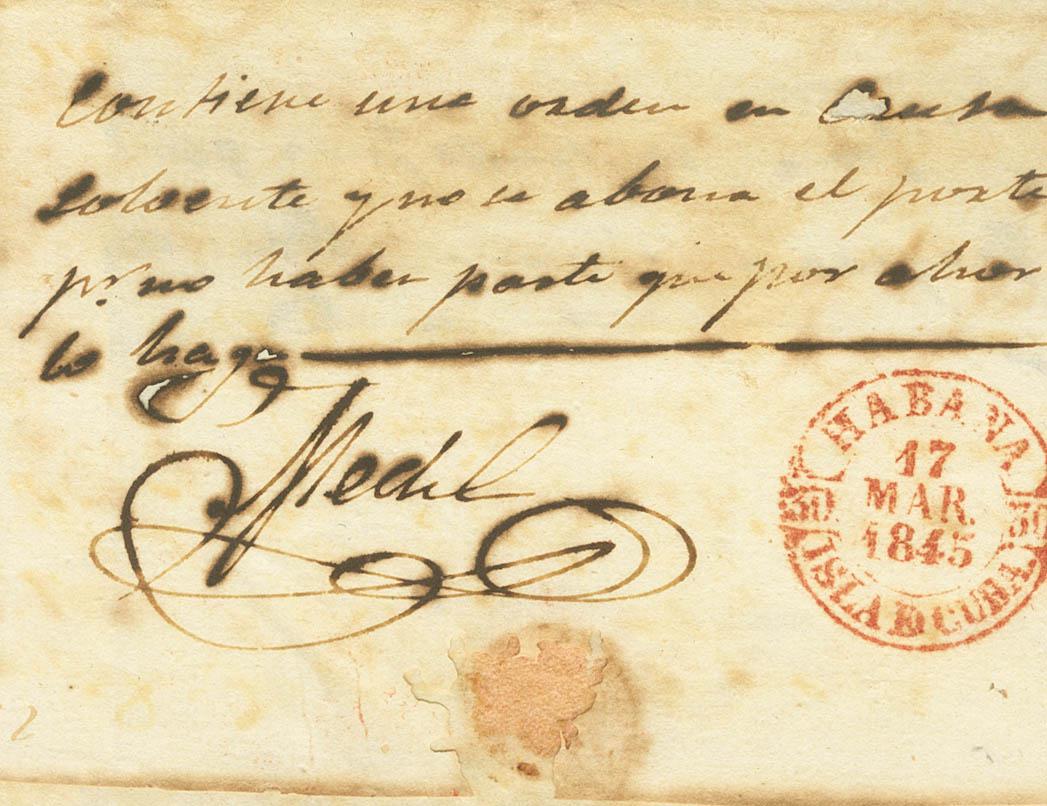 Contiene una orden en Causa
Solvente y no se abona el porte
pr. no haber parte que por ahor
lo haga
Medel
HABANA
17
MAR.
1845
30 30
ISLA DE CUBA